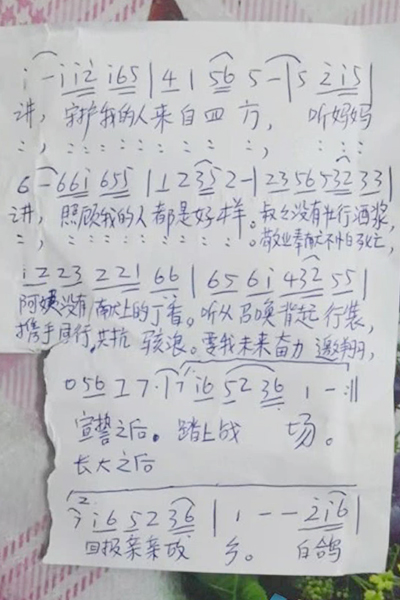 i - i i 2 i 6 5 | 4 1 5 6 5 - | 5 2 i 5 |
讲，守护我的人来自四方，听妈妈
:，: : : : : : : : :，: : :
6 - 6 6 i 6 5 5 | 1 2 3 5 2 - | 2 3 5 6 5 3 2 3 3 |
讲，照顾我的人都是好样。叔叔没有壮行酒浆，
:，: : : : : : : : : :。敬业奉献不怕
i 2 2 3 2 2 1 6 6 | 6 5 6 i 4 3 2 5 5 |
阿姨没有献上的丁香。听从召唤背起行装，
携手同行，共抗骇浪。要我未来奋力遨翔，
0 5 6 2 7 · | 7 i 6 5 2 3 6 1 - :||
宣誓之后。踏上战场。
长大之后
2
7 i 6 5 2 3 6 | 1 - - 2 i 6 |
回报亲亲故乡。白鸽